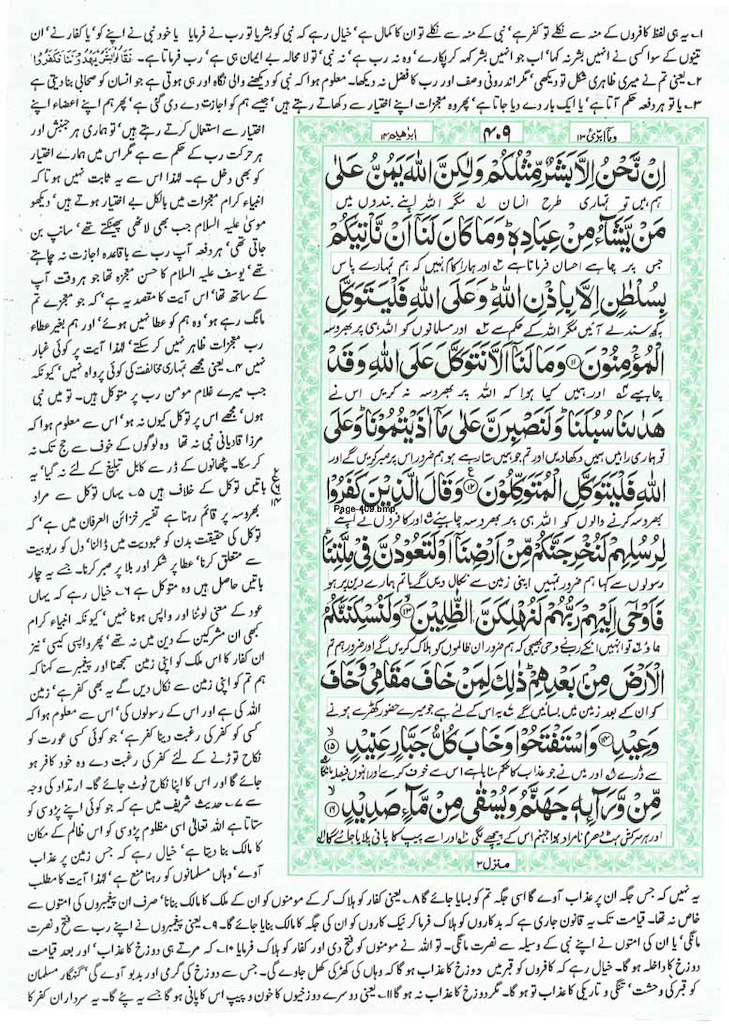 ۱۔ یہ ہی لفظ کافروں کے منہ سے نکلے تو کفر ہے' نبی کے منہ سے نکلے تو ان کا کمال ہے' خیال رہے کہ نبی کو بشر یا تو رب نے فرمایا یا خود نبی نے اپنے کو' یا کفار نے' ان
تینوں کے سوا کسی نے انہیں بشر نہ کہا' اب جو انہیں بشر کہہ کر پکارے' وہ نہ رب ہے' نہ نبی' تو لا محالہ بے ایمان ہی ہے' رب فرماتا ہے۔ فَقَالُوْٓا اَبَشَرٌ یَّهْدُوْنَنَا فَكَفَرُوْا
۲۔ یعنی تم نے میری ظاہری شکل تو دیکھی' مگر اندرونی وصف اور رب کا فضل نہ دیکھا۔ معلوم ہوا کہ نبی کو دیکھنے والی نگاہ اور ہی ہوتی ہے جو انسان کو صحابی بنا دیتی ہے
۳۔ یا تو ہر دفعہ حکم آتا ہے' یا ایک بار دے دیا جاتا ہے' پھر وہ معجزات اپنے اختیار سے دکھاتے رہتے ہیں' جیسے ہم کو اجازت دے دی گئی ہے' پھر ہم اپنے اعضاء اپنے
اختیار سے استعمال کرتے رہتے ہیں' تو ہماری ہر جنبش اور
ہر حرکت رب کے حکم سے ہے مگر اس میں ہمارے اختیار
کو بھی دخل ہے۔ لہذا اس سے یہ ثابت نہیں ہوتا کہ
انبیاء کرام معجزات میں بالکل بے اختیار ہوتے ہیں' دیکھو
موسیٰ علیہ السلام جب بھی لاٹھی پھینکتے تھے' سانپ بن
جاتی تھی' ہر دفعہ آپ رب سے باقاعدہ اجازت نہ چاہتے
تھے' یوسف علیہ السلام کا حسن معجزہ تھا جو ہر وقت آپ
کے ساتھ تھا' اس آیت کا مقصد یہ ہے' کہ جو معجزے تم
مانگ رہے ہو' وہ ہم کو عطا نہیں ہوئے' اور ہم بغیر عطاء
رب معجزات ظاہر نہیں کر سکتے' لہذا آیت پر کوئی غبار
نہیں ۴۔ یعنی مجھے تمہاری مخالفت کی کوئی پرواہ نہیں' کیونکہ
جب میرے غلام مومن رب پر متوکل ہیں۔ تو میں نبی
ہوں' مجھے اس پر توکل کیوں نہ ہو' اس سے معلوم ہوا کہ
مرزا قادیانی نبی نہ تھا وہ لوگوں کے خوف سے حج تک نہ
کر سکا۔ پٹھانوں کے ڈر سے کابل تبلیغ کے لئے نہ گیا' یہ
باتیں توکل کے خلاف ہیں ۵۔ یہاں توکل سے مراد
بھروسہ پر قائم رہنا ہے تفسیر خزائن العرفان میں ہے' کہ
توکل کی حقیقت بدن کو عبودیت میں ڈالنا' دل کو ربوبیت
سے متعلق کرنا' عطا پر شکر اور بلا پر صبر کرنا۔ جسے یہ چار
باتیں حاصل ہیں وہ متوکل ہے ۶۔ خیال رہے کہ یہاں
عود کے معنی لوٹنا اور واپس ہونا نہیں' کیونکہ انبیاء کرام
کبھی ان مشرکین کے دین میں نہ تھے' پھر واپسی کیسی' نیز
ان کفار کا اس ملک کو اپنی زمین سمجھنا اور پیغمبر سے کہنا کہ
ہم تم کو اپنی زمین سے نکال دیں گے یہ بھی کفر ہے' زمین
اللہ کی ہے اور اس کے رسولوں کی' اس سے معلوم ہوا کہ
کسی کو کفر کی رغبت دینا کفر ہے' جو کوئی کسی عورت کو
نکاح توڑنے کے لئے کفر کی رغبت دے وہ خود کافر ہو
جائے گا اور اس کا اپنا نکاح ٹوٹ جائے گا۔ ارتداد کی وجہ
سے ۷۔ حدیث شریف میں ہے کہ جو کوئی اپنے پڑوسی کو
ستاتا ہے اللہ تعالیٰ اسی مظلوم پڑوسی کو اس ظالم کے مکان
کا مالک بنا دیتا ہے' خیال رہے کہ جس زمین پر عذاب
آوے' وہاں مسلمانوں کو رہنا منع ہے' لہذا آیت کا مطلب
وما ابرئ ۱۳
۴۰۹
ابرٰهيم ۱۴
اِنْ نَّحْنُ اِلَّا بَشَرٌ مِّثْلُكُمْ وَلٰكِنَّ اللّٰهَ يَمُنُّ عَلٰى
ہم ہیں تو تمہاری طرح انسان لے مگر اللہ اپنے بندوں میں
مَنْ يَّشَآءُ مِنْ عِبَادِهٖ ؕ وَمَا كَانَ لَنَاۤ اَنْ نَّاْتِيَكُمْ
جس پر چاہے احسان فرماتا ہے ۲ اور ہمارا کام نہیں کہ ہم تمہارے پاس
بِسُلْطٰنٍ اِلَّا بِاِذْنِ اللّٰهِ ؕ وَعَلَى اللّٰهِ فَلْيَتَوَكَّلِ
کچھ سند لے آئیں مگر اللہ کے حکم سے ۳ اور مسلمانوں کو اللہ ہی پر بھروسہ
الْمُؤْمِنُوْنَ ⑪ وَمَا لَنَاۤ اَلَّا نَتَوَكَّلَ عَلَى اللّٰهِ وَقَدْ
چاہیے ۴ اور ہمیں کیا ہوا کہ اللہ پر بھروسہ نہ کریں اس نے
هَدٰىنَا سُبُلَنَا ؕ وَلَنَصْبِرَنَّ عَلٰى مَاۤ اٰذَيْتُمُوْنَا ؕ وَعَلَى
تو ہماری راہیں ہمیں دکھا دیں اور تم جو ہمیں ستا رہے ہو ہم ضرور اس پر صبر کریں گے اور
اللّٰهِ فَلْيَتَوَكَّلِ الْمُتَوَكِّلُوْنَ ⑫ وَقَالَ الَّذِيْنَ كَفَرُوْا
Page-409.bmp
بھروسہ کرنے والوں کو اللہ ہی پر بھروسہ چاہیئے ۵ اور کافروں نے اپنے
لِرُسُلِهِمْ لَنُخْرِجَنَّكُمْ مِّنْ اَرْضِنَاۤ اَوْ لَتَعُوْدُنَّ فِيْ مِلَّتِنَا ؕ
رسولوں سے کہا ہم ضرور تمہیں اپنی زمین سے نکال دیں گے یا تم ہمارے دین پر ہو
فَاَوْحٰۤى اِلَيْهِمْ رَبُّهُمْ لَنُهْلِكَنَّ الظّٰلِمِيْنَ ⑬ وَلَنُسْكِنَنَّكُمُ
جاؤ ۶ تو انہیں انکے رب نے وحی بھیجی کہ ہم ضرور ان ظالموں کو ہلاک کریں گے اور ضرور ہم تم
الْاَرْضَ مِنْۢ بَعْدِهِمْ ؕ ذٰلِكَ لِمَنْ خَافَ مَقَامِيْ وَخَافَ
کو ان کے بعد زمین میں بسائیں گے ۷ یہ اس لئے ہے جو میرے حضور کھڑے ہونے
وَعِيْدِ ⑭ وَاسْتَفْتَحُوْا وَخَابَ كُلُّ جَبَّارٍ عَنِيْدٍ ⑮
سے ڈرے ۸ اور میں نے جو عذاب کا حکم سنایا ہے اس سے خوف کرے اور انہوں فیصلہ مانگا
مِّنْ وَّرَآئِهٖ جَهَنَّمُ وَيُسْقٰى مِنْ مَّآءٍ صَدِيْدٍ ⑯
اور ہر سرکش ہٹ دھرم نامراد ہوا جہنم اس کے پیچھے لگی ۱۰ اور اسے پیپ کا پانی پلایا جائے گا ۱۱
منزل ۳
یہ نہیں کہ جس جگہ ان پر عذاب آوے گا اسی جگہ تم کو بسایا جائے گا ۸۔ یعنی کفار کو ہلاک کر کے مومنوں کو ان کے ملک کا مالک بنانا' صرف ان پیغمبروں کی امتوں سے
خاص نہ تھا۔ قیامت تک یہ قانون جاری ہے کہ بدکاروں کو ہلاک فرما کر نیک کاروں کو ان کی جگہ کا مالک بنایا جائے گا۔ ۹۔ یعنی پیغمبروں نے اپنے رب سے فتح و نصرت
مانگی' یا ان کی امتوں نے اپنے نبی کے وسیلہ سے نصرت مانگی۔ تو اللہ نے مومنوں کو فتح دی اور کفار کو ہلاک فرمایا ۱۰۔ کہ مرتے ہی دوزخ کا عذاب' اور بعد قیامت
دوزخ کا داخلہ ہو گا۔ خیال رہے کہ کافروں کو قبر میں دوزخ کا عذاب ہو گا کہ وہاں کی کھڑکی کھل جاوے گی۔ جس سے دوزخ کی گرمی اور بدبو آوے گی' گنہگار مسلمان
کو قبر کی وحشت' تنگی و تاریکی کا عذاب تو ہو گا۔ مگر دوزخ کا عذاب نہ ہو گا ۱۱۔ یعنی دوسرے دوزخیوں کا خون و پیپ اس کا پانی ہو گا جسے یہ پئے گا۔ یہ سرداران کفر کا